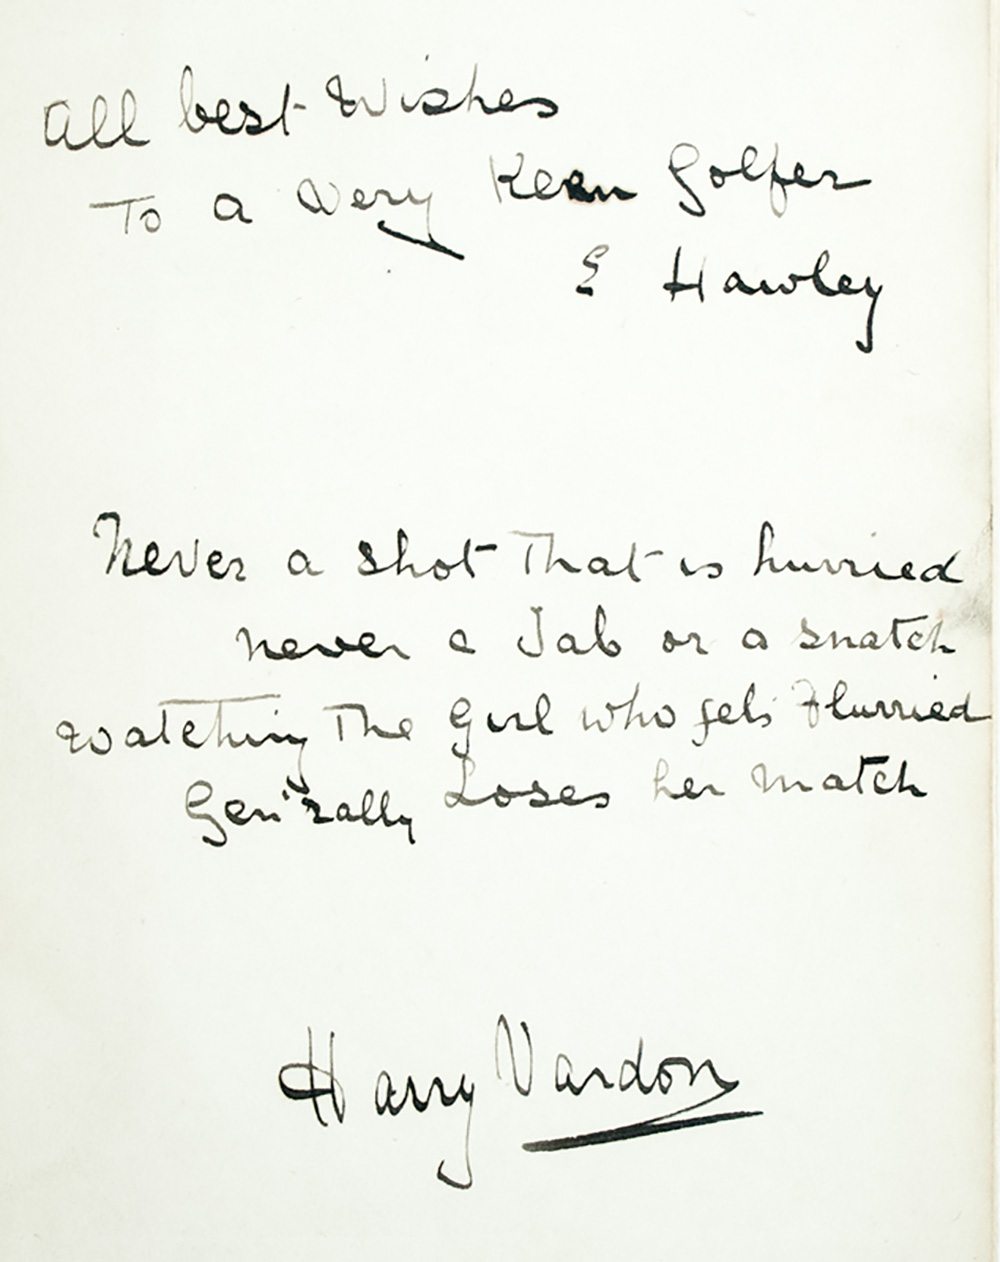 All best Wishes
To a Very Keen Golfer
E Hawley
Never a shot That is hurried
never a Jab or a snatch
Watching The Girl who gets Flurried
Gen'rally Loses her Match
Harry Vardon